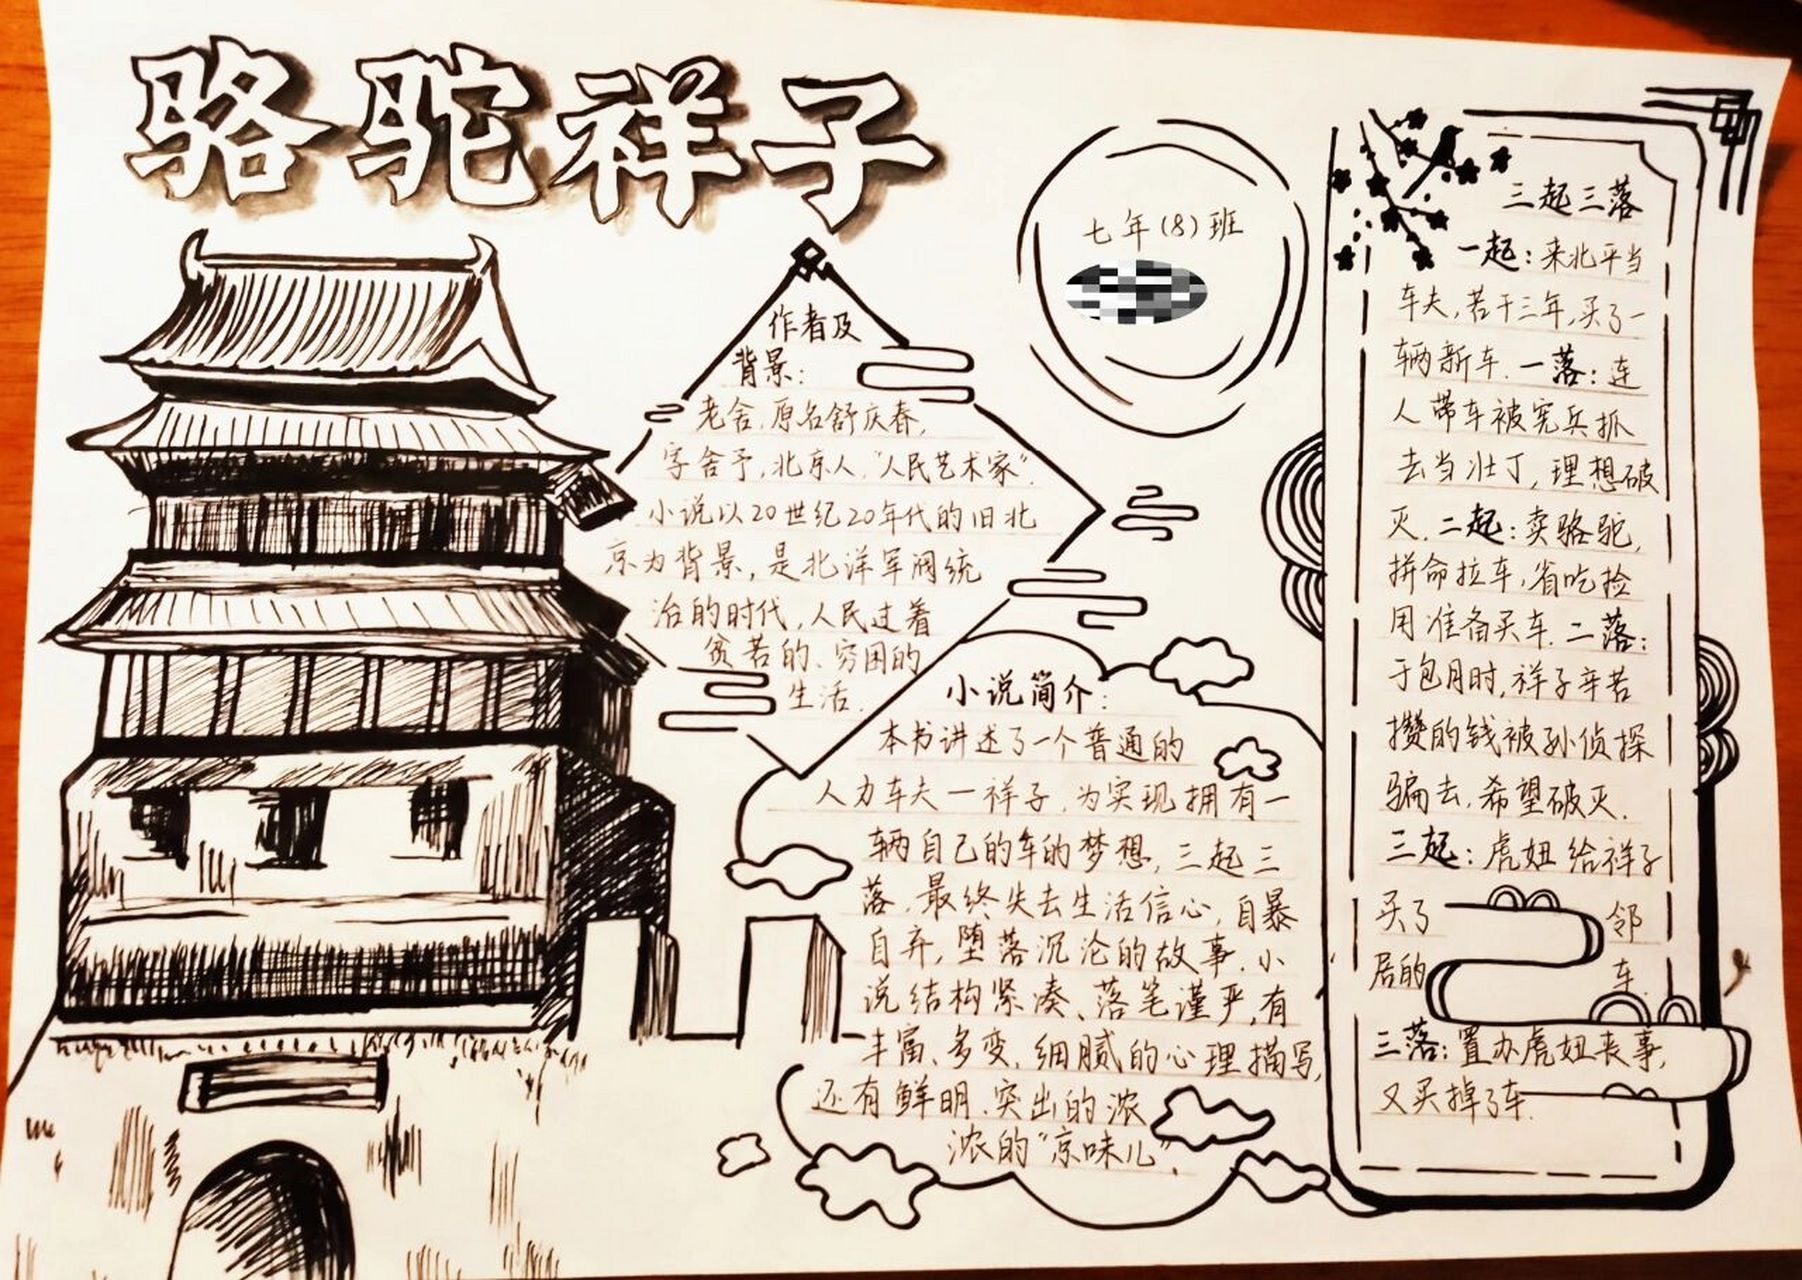 骆驼祥子
七年(8)班
作者及
背景:
老舍,原名舒庆春,
字舍予,北京人,"人民艺术家".
小说以20世纪20年代的旧北
京为背景,是北洋军阀统
治的时代,人民过着
贫苦的、穷困的
生活.
小说简介:
本书讲述了一个普通的
人力车夫一祥子,为实现拥有一
辆自己的车的梦想,三起三
落,最终失去生活信心,自暴
自弃,堕落沉沦的故事.小
说结构紧凑、落笔谨严,有
丰富、多变、细腻的心理描写,
还有鲜明、突出的浓
浓的"京味儿".
三起三落
一起:来北平当
车夫,若干三年,买了一
辆新车.一落:连
人带车被宪兵抓
去当壮丁,理想破
灭.二起:卖骆驼,
拼命拉车,省吃捡
用准备买车.二落:
于包月时,祥子辛苦
攒的钱被孙侦探
骗去,希望破灭.
三起:虎妞给祥子
买了邻
居的车.
三落:置办虎妞丧事,
又买掉了车.